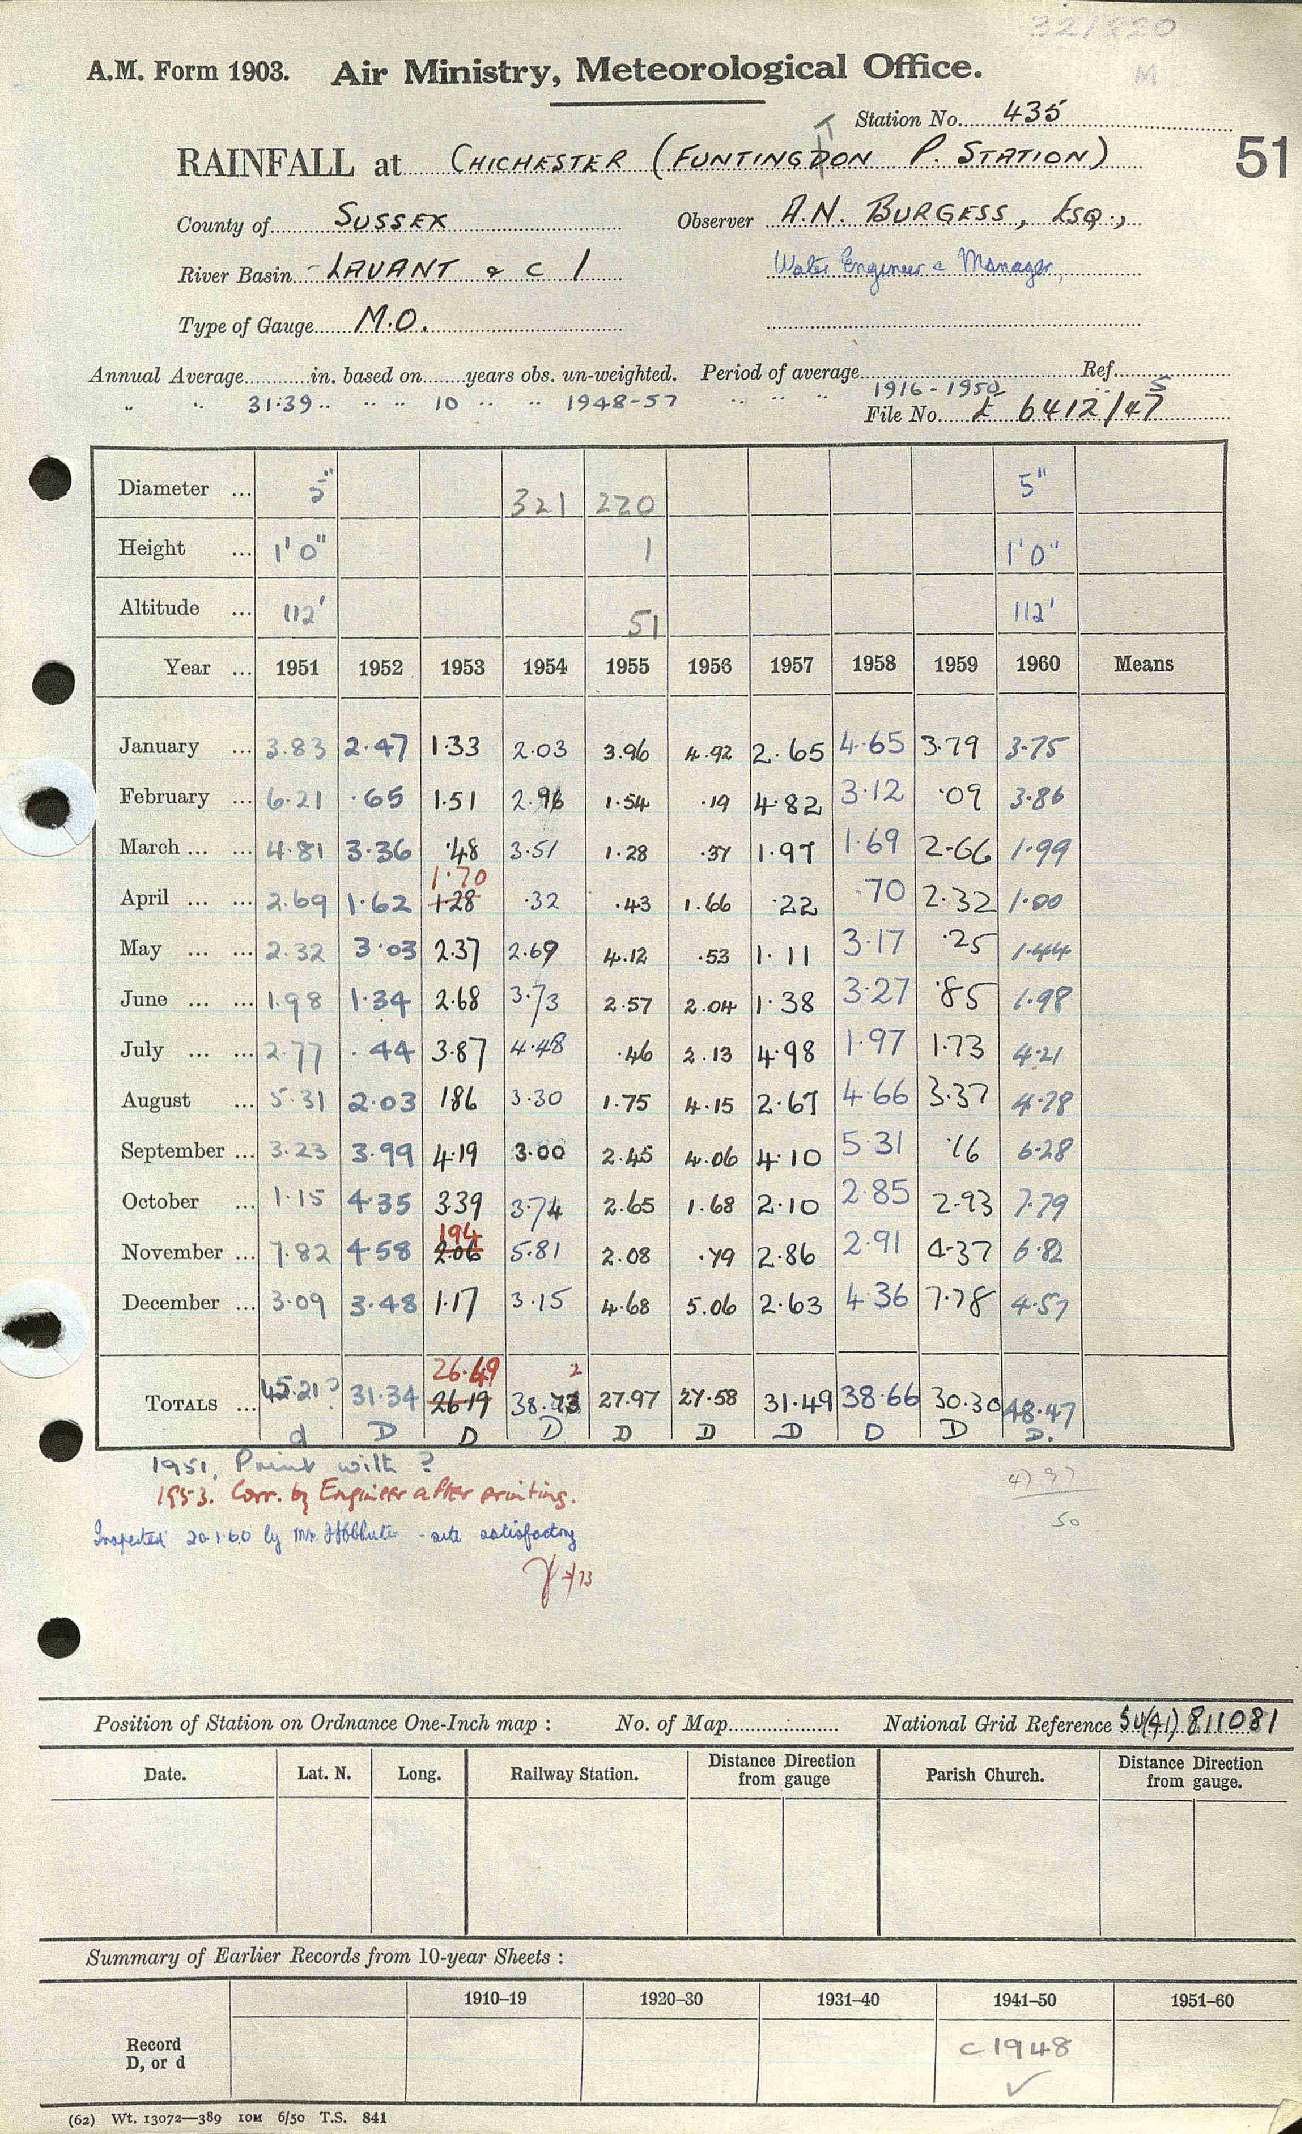 32/220
M
A.M. Form 1903. Air Ministry, Meteorological Office.
Station No. 435
RAINFALL at CHICHESTER (FUNTINGDON P. STATION) 51
T
County of SUSSEX Observer A.N. BURGESS, ESQ.,
River Basin LAVANT & C 1 Water Engineer & Manager,
Type of Gauge M.O.
Annual Average in. based on years obs. un-weighted. Period of average 1916-1950 Ref.
" " 31.39 " " " 10 " " 1948-57 " " " File No. 6412/47
5
Diameter ... 5" 321 220 5"
Height ... 1' 0" 1 1' 0"
Altitude ... 112' 51 112'
Year ... 1951 1952 1953 1954 1955 1956 1957 1958 1959 1960 Means
January ... 3.83 2.47 1.33 2.03 3.96 4.92 2.65 4.65 3.79 3.75
February ... 6.21 .65 1.51 2.96 1.54 .19 4.82 3.12 .09 3.86
March ... ... 4.81 3.36 .48 3.51 1.28 .37 1.97 1.69 2.66 1.99
1.70
April ... ... 2.69 1.62 1.28 .32 .43 1.66 .22 .70 2.32 1.80
May ... ... 2.32 3.03 2.37 2.69 4.12 .53 1.11 3.17 .25 1.44
June ... ... 1.98 1.34 2.68 3.73 2.57 2.04 1.38 3.27 .85 1.98
July ... ... 2.77 .44 3.87 4.48 .46 2.13 4.98 1.97 1.73 4.21
August ... 5.31 2.03 186 3.30 1.75 4.15 2.67 4.66 3.37 4.78
September ... 3.23 3.99 4.19 3.00 2.45 4.06 4.10 5.31 .16 6.28
October ... 1.15 4.35 339 3.74 2.65 1.68 2.10 2.85 2.93 7.79
194
November ... 7.82 4.58 2.06 5.81 2.08 .79 2.86 2.91 4.37 6.82
December ... 3.09 3.48 1.17 3.15 4.68 5.06 2.63 4.36 7.78 4.57
26.49 2
TOTALS ... 45.21? 31.34 26.19 38.73 27.97 27.58 31.49 38.66 30.30 48.47
d D D D D D D D D D.
1951, Print with ?
1953. Corr. by Engineer after printing.
Inspected 20.1.60 by Mr. - site satisfactory
47 97
50
Position of Station on Ordnance One-Inch map : No. of Map National Grid Reference SU(41) 811081
Date. Lat. N. Long. Railway Station. Distance Direction from gauge Parish Church. Distance Direction from gauge.
Summary of Earlier Records from 10-year Sheets :
1910–19 1920–30 1931–40 1941–50 1951–60
Record
D, or d
c 1948
✓
(62) Wt. 13072—389 10M 6/50 T.S. 841